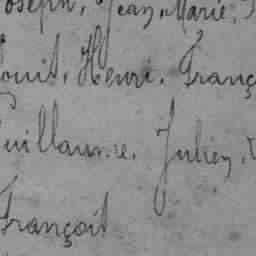 Joseph, Jean, Marie,
Louis, Henri, Franç
Guillaume, Julien,
François